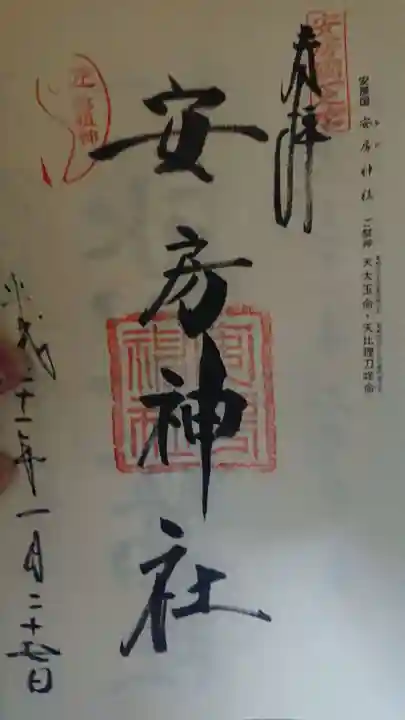 安房国 安房神社 ご祭神 天太玉命・天比理刀咩命
奉拝
安房神社
安房神社
平成二十七年一月二十七日